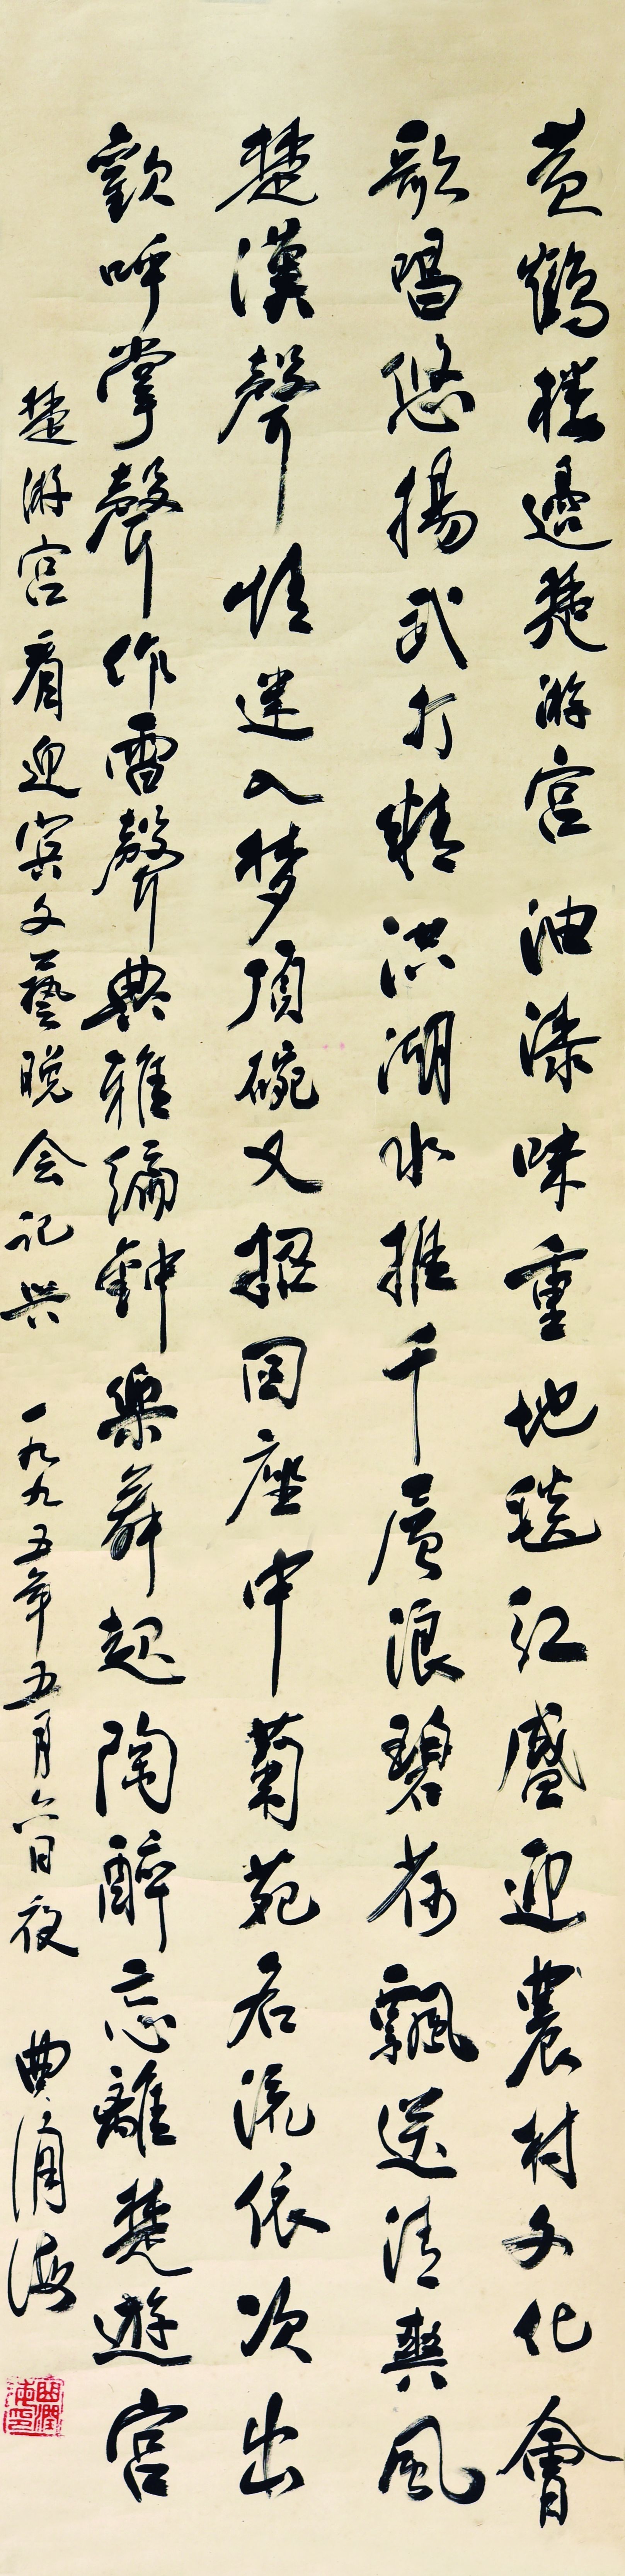 黄鶴楼邊楚游宫油漆味重地毯红盛迎農村文化會
歌唱悠揚武打精洪湖水推千層浪碧荷飄送清爽風
楚漢聲情迷入梦頂碗又招回座中菊苑名流依次出
歡呼掌聲作雷聲典雅编鈡樂舞起陶醉忘離楚遊宫
楚游宫看迎宾文藝晚会记兴 一九九五年五月六日夜 曲润海
曲潤海印